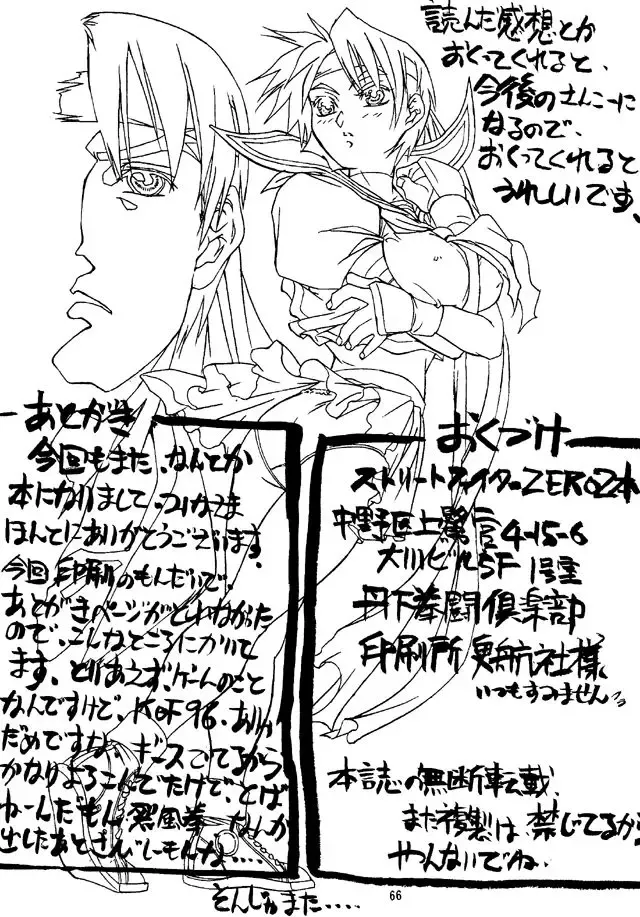 読んだ感想とか
おくってくれると、
今後のさんこーに
なるので、
おくってくれると
うれしいです。
あとがき
今回もまた、なんとか
本になりまして、みなさま
ほんとにありがとうございます。
今回印刷のもんだいで、
あとがきページがとれなかった
ので、こんなところにかいて
ます。とりあえず、ゲームのこと
なんですけど、KOF96、あれ
だめですな。ギースでてるから
かなりよろこんでたけど、とば
ねーんだもん烈風拳、なんか
出したあとさびしーもんな....
そんじゃまた....
おくづけ
ストリートファイターZERO2本
中野区上鷺宮4-15-6
大川ビル5F 1号室
丹下拳闘倶楽部
印刷所 航社様
いつもすみません
本誌の無断転載、
また複製は、禁じてるから
やんないでね。
66